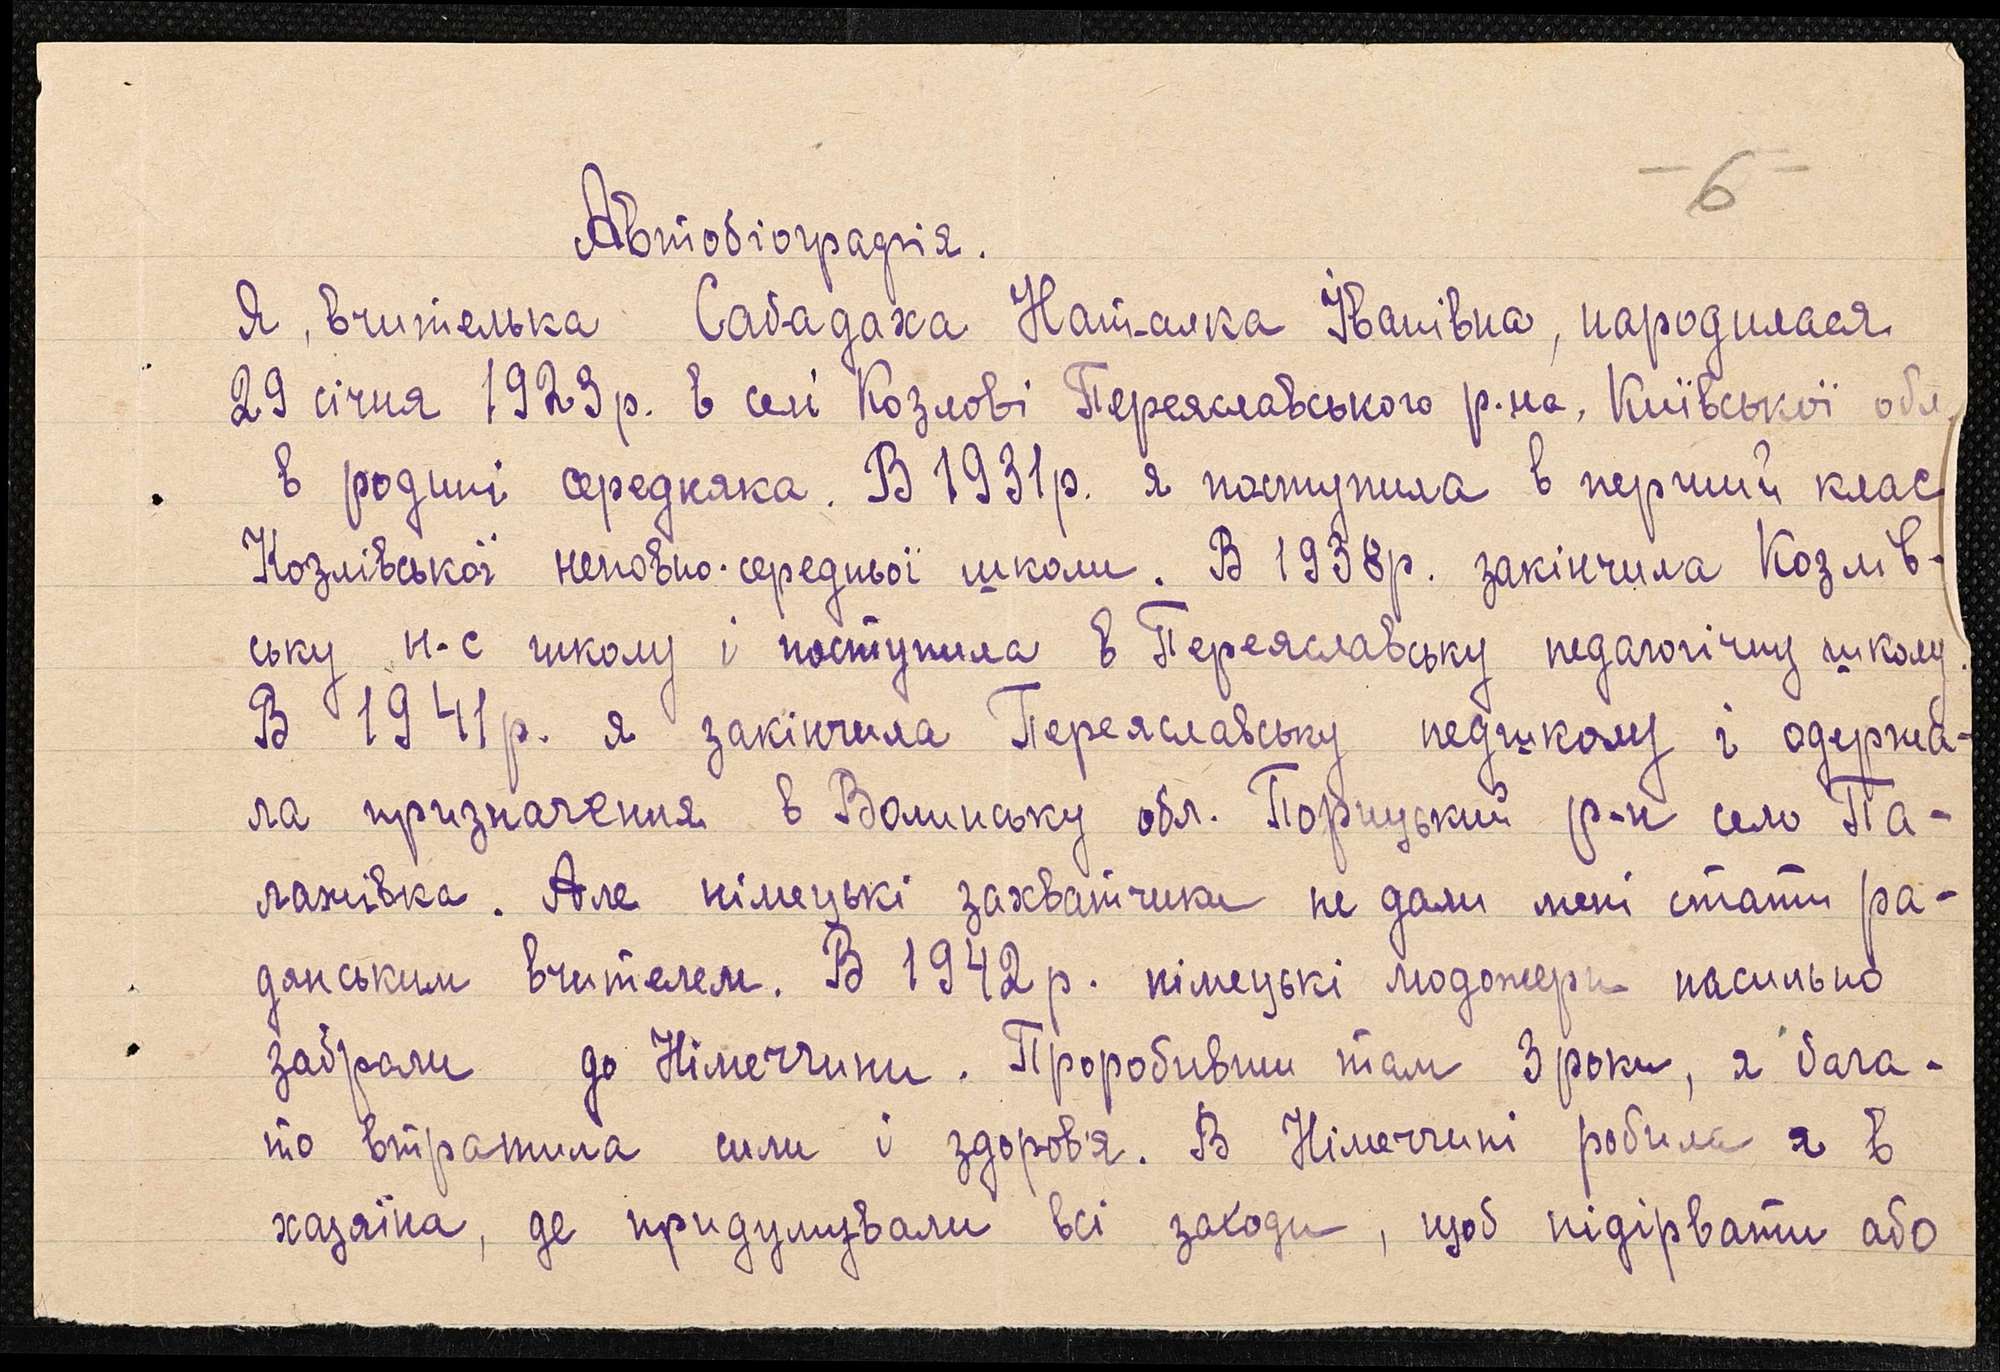 -6-
Автобіографія.
Я, вчителька Сабадаха Наталка Іванівна, народилася
29 січня 1923р. в селі Козлові Переяславського р-на, Київської обл.
в родині середняка. В 1931р. я поступила в перший клас
Козлівської неповно-середньої школи. В 1938р. закінчила Козлів-
ську н-с школу і поступила в Переяславську педагогічну школу.
В 1941р. я закінчила Переяславську педшколу і одержа-
ла призначення в Волинську обл. Порицький р-н село Па-
лажівка. Але німецькі захватчики не дали мені стати ра-
дянським вчителем. В 1942р. німецькі людожери насильно
забрали до Німеччини. Проробивши там 3 роки, я бага-
то втратила сили і здоров'я. В Німеччині робила я в
хазяїна, де придумували всі заходи, щоб підірвати або